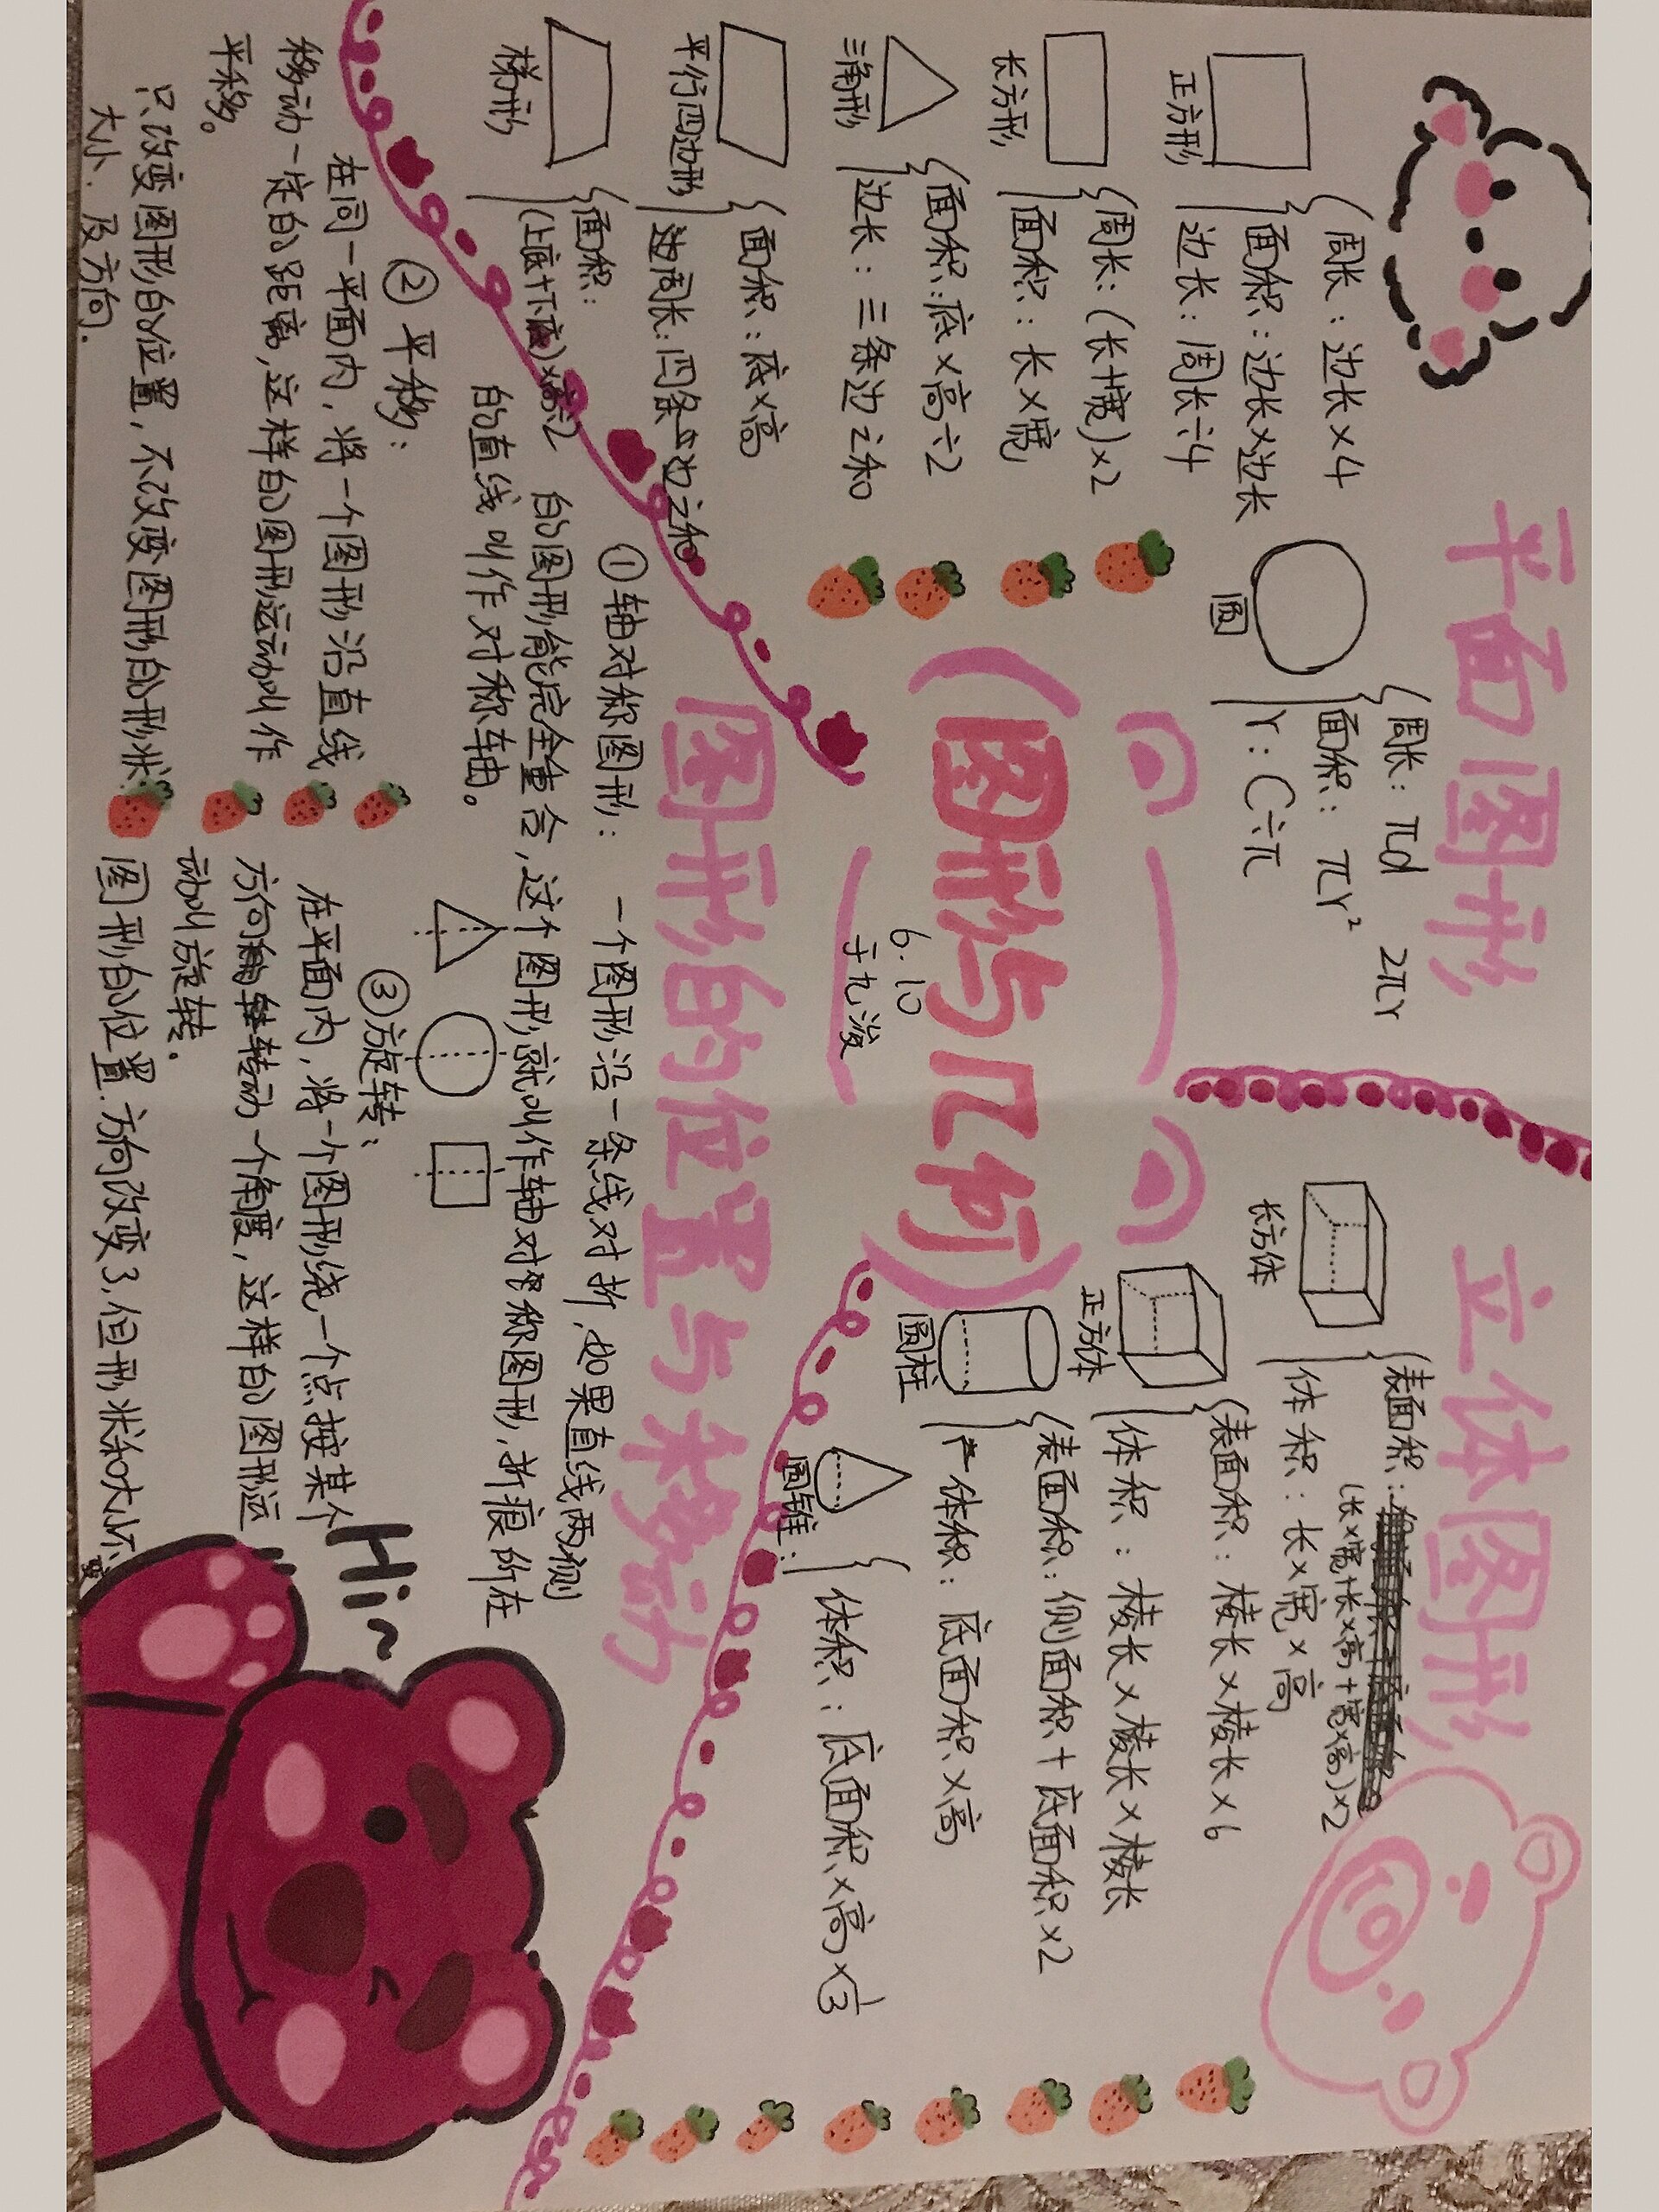 平面图形
正方形
周长：边长×4
面积：边长×边长
边长：周长÷4
长方形
周长：(长+宽)×2
面积：长×宽
三角形
面积：底×高÷2
边长：三条边之和
平行四边形
面积：底×高
周长：四条边之和
梯形
面积：
(上底+下底)×高÷2
圆
周长：πd 2πr
面积：πr²
r：C÷π
立体图形
长方体
表面积：
(长×宽+长×高+宽×高)×2
体积：长×宽×高
正方体
表面积：棱长×棱长×6
体积：棱长×棱长×棱长
圆柱
表面积：侧面积+底面积×2
体积：底面积×高
圆锥：
体积：底面积×高×1/3
(图形与几何)
6.10
图形的位置与移动
①轴对称图形： 一个图形沿一条线对折，如果直线两侧
的图形能完全重合，这个图形就叫作轴对称图形，折痕所在
的直线叫作对称轴。
②平移：
在同一平面内，将一个图形沿直线
移动一定的距离，这样的图形运动叫作
平移。
只改变图形的位置，不改变图形的形状、
大小、及方向.
③旋转：
在平面内，将一个图形绕一个点按某个
方向转动一个角度，这样的图形运
动叫旋转.
图形的位置.方向改变3,但形状和大小不变
Hi~